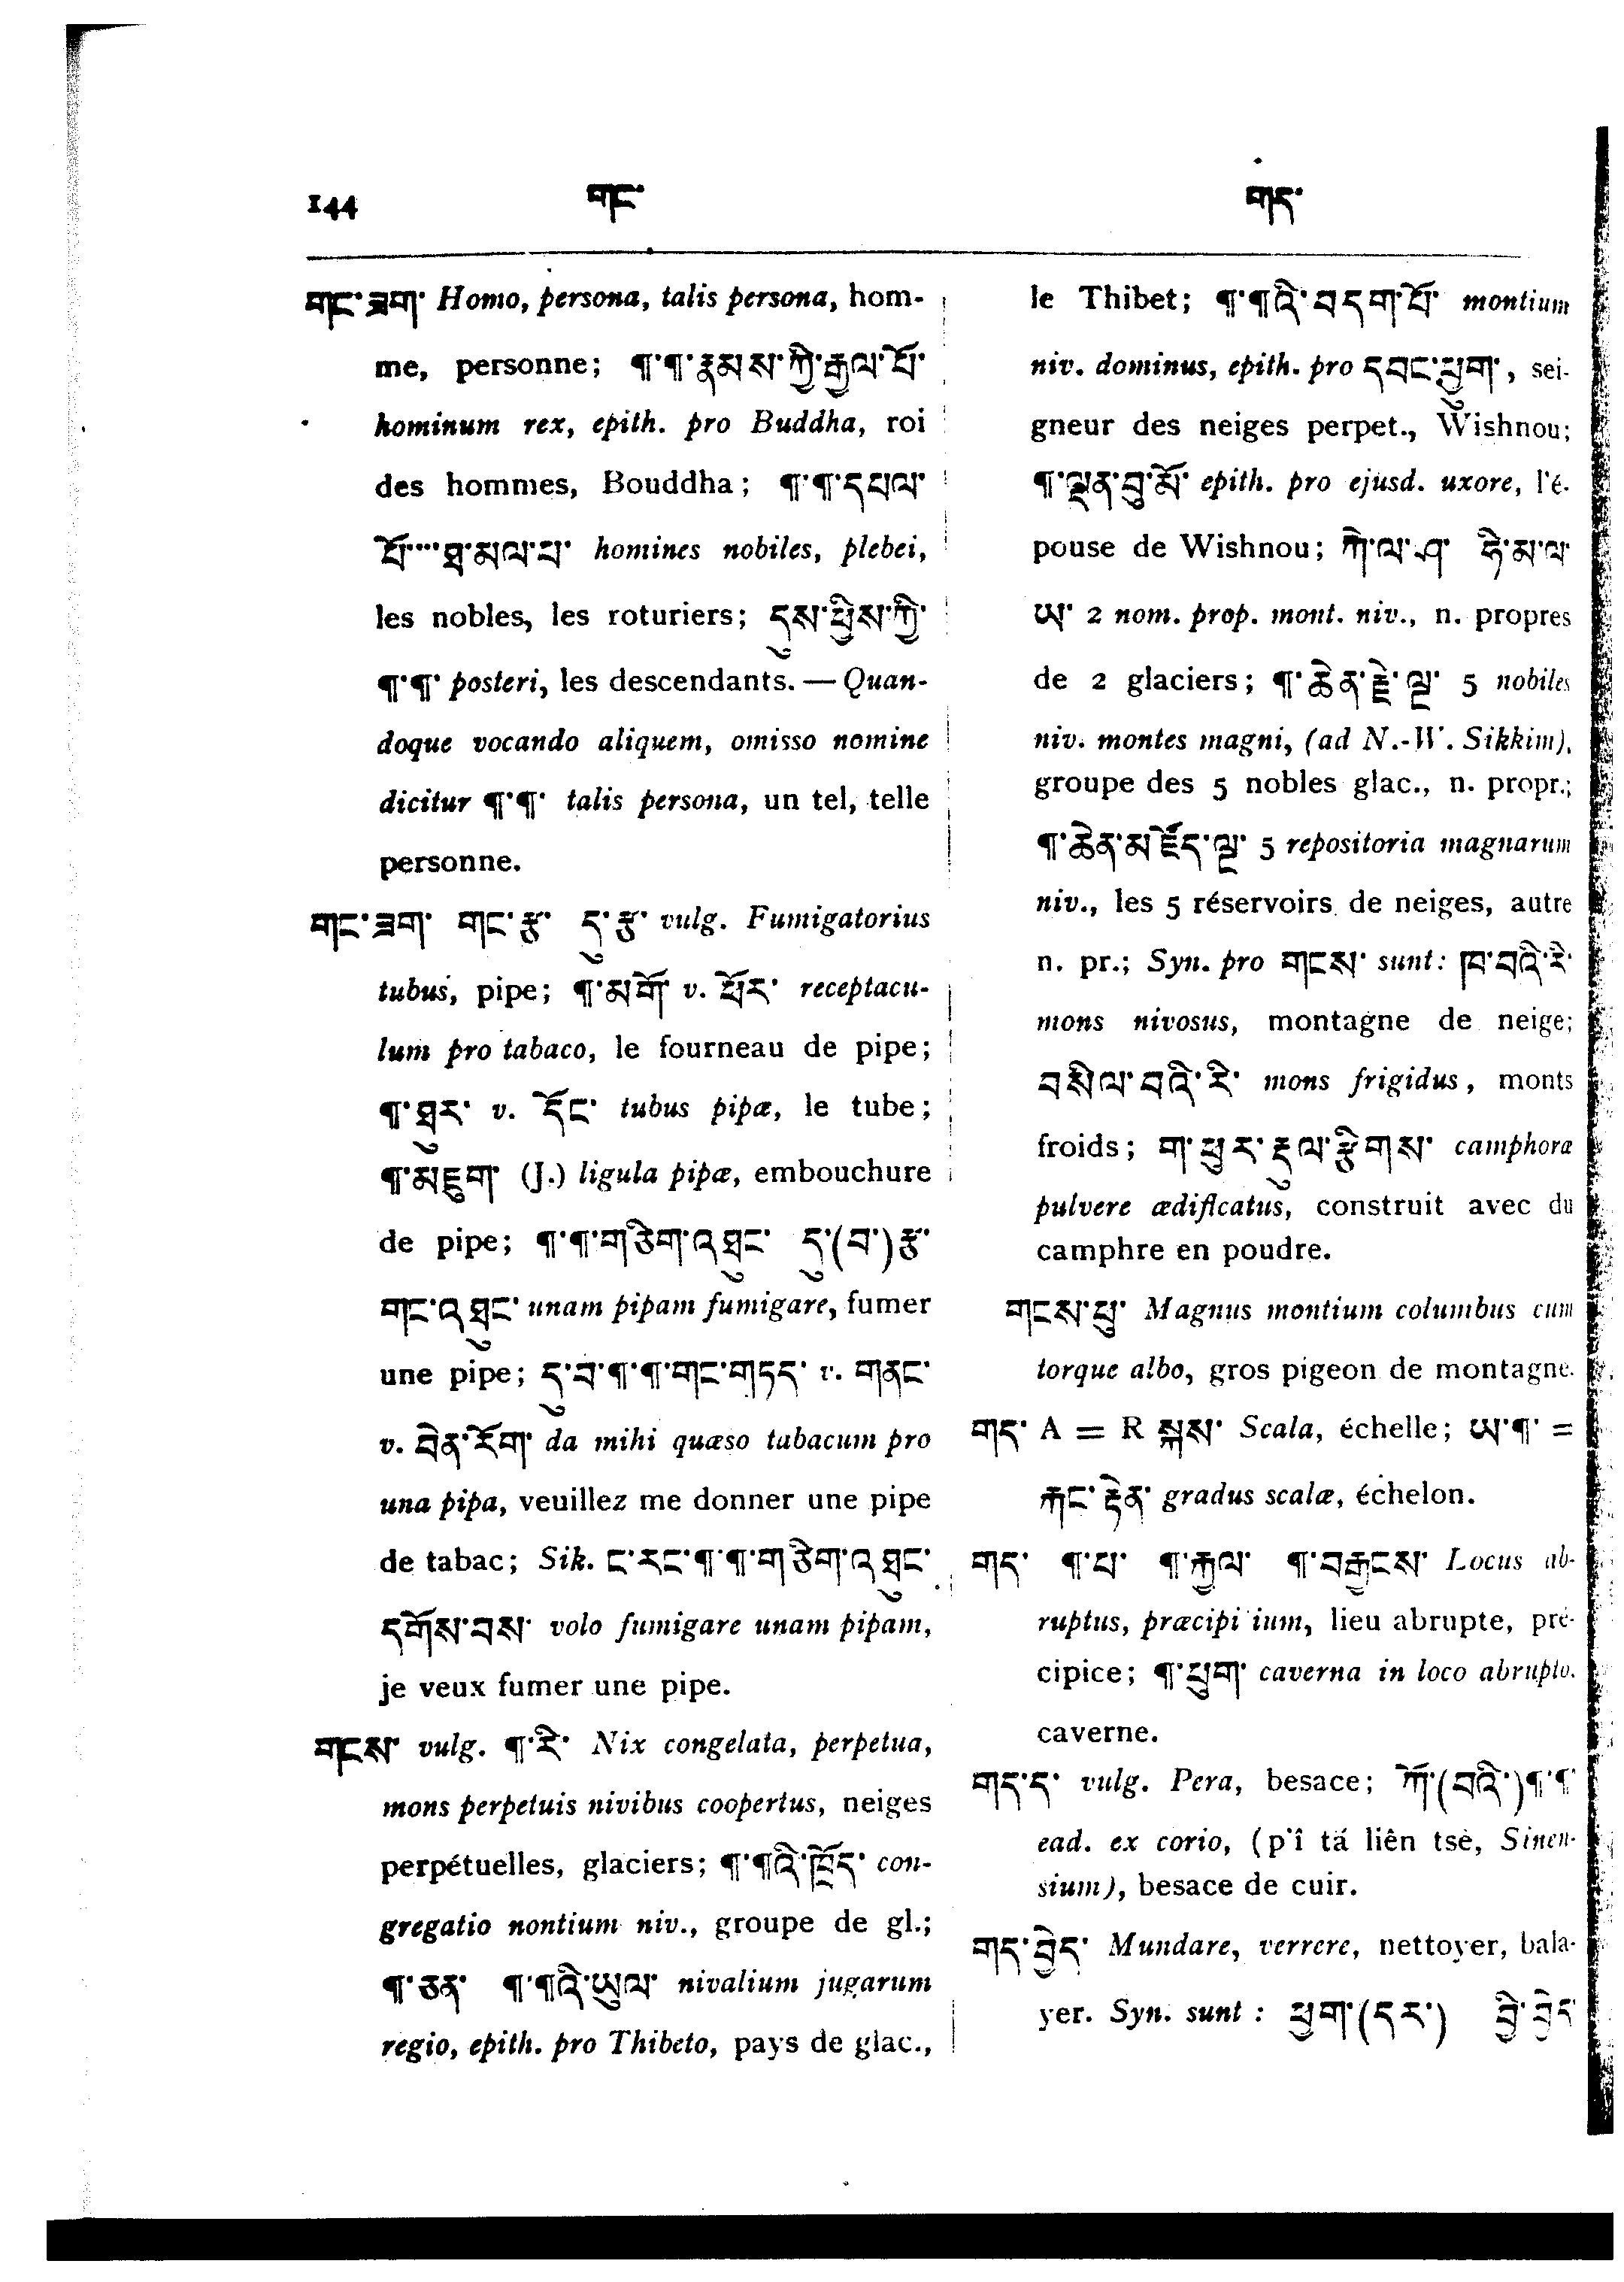 144 གང་ གད་
གང་ཟག་ Homo, persona, talis persona, hom-
me, personne; ¶་¶་རྣམས་ཀྱི་རྒྱལ་པོ་
hominum rex, epith. pro Buddha, roi
des hommes, Bouddha; ¶་¶་དཔལ་
པོ་...་ཐ་མལ་པ་ homines nobiles, plebei,
les nobles, les roturiers; དུས་ཕྱིས་ཀྱི་
¶་¶་ posteri, les descendants. — Quan-
doque vocando aliquem, omisso nomine
dicitur ¶་¶་ talis persona, un tel, telle
personne.
གང་ཟག་ གང་རྫ་ དུ་རྫ་ vulg. Fumigatorius
tubus, pipe; ¶་མགོ་ v. ཕོར་ receptacu-
lum pro tabaco, le fourneau de pipe;
¶་ཐུར་ v. དོང་ tubus pipæ, le tube;
¶་མཇུག་ (J.) ligula pipæ, embouchure
de pipe; ¶་¶་གཅིག་འཐུང་ དུ་(བ་)རྫ་
གང་འཐུང་ unam pipam fumigare, fumer
une pipe; དུ་བ་¶་¶་གང་གཏད་ v. གནང་
v. བིན་རོག་ da mihi quæso tabacum pro
una pipa, veuillez me donner une pipe
de tabac; Sik. ང་རང་¶་¶་གཅིག་འཐུང་
དགོས་བས་ volo fumigare unam pipam,
je veux fumer une pipe.
གངས་ vulg. ¶་རི་ Nix congelata, perpetua,
mons perpetuis nivibus coopertus, neiges
perpétuelles, glaciers; ¶་¶འི་ཁྲོད་ con-
gregatio nontium niv., groupe de gl.;
¶་ཅན་ ¶་¶འི་ཡུལ་ nivalium jugarum
regio, epith. pro Thibeto, pays de glac.,
le Thibet; ¶་¶འི་བདག་པོ་ montium
niv. dominus, epith. pro དབང་ཕྱུག་, sei-
gneur des neiges perpet., Wishnou;
¶་ལྡན་བུ་མོ་ epith. pro ejusd. uxore, l'é-
pouse de Wishnou; ཀེ་ལ་ཤ་ ཧེ་མ་ལ་
ཡ་ 2 nom. prop. mont. niv., n. propres
de 2 glaciers; ¶་ཆེན་རྗེ་ལྔ་ 5 nobiles
niv. montes magni, (ad N.-W. Sikkim),
groupe des 5 nobles glac., n. propr.;
¶་ཆེན་མཛོད་ལྔ་ 5 repositoria magnarum
niv., les 5 réservoirs de neiges, autre
n. pr.; Syn. pro གངས་ sunt: ཁ་བའི་རི་
mons nivosus, montagne de neige;
བསིལ་བའི་རི་ mons frigidus, monts
froids; ག་ཕུར་རྡུལ་རྩིགས་ camphoræ
pulvere ædificatus, construit avec du
camphre en poudre.
གངས་ཕུ་ Magnus montium columbus cum
torque albo, gros pigeon de montagne.
གད་ A = R སྐས་ Scala, échelle; ཡ་¶་ =
རྐང་རྟེན་ gradus scalæ, échelon.
གད་ ¶་པ་ ¶་རྐྱལ་ ¶་བརྒྱངས་ Locus ab-
ruptus, præcipi ium, lieu abrupte, pré-
cipice; ¶་ཕུག་ caverna in loco abrupto.
caverne.
གད་ད་ vulg. Pera, besace; ཀོ་(བའི་)¶་¶་
ead. ex corio, (p'î tá liên tsè, Sinen-
sium), besace de cuir.
གད་བྱེད་ Mundare, verrere, nettoyer, bala-
yer. Syn. sunt : ཕྱག་(དར་) བྱི་བྱེད་